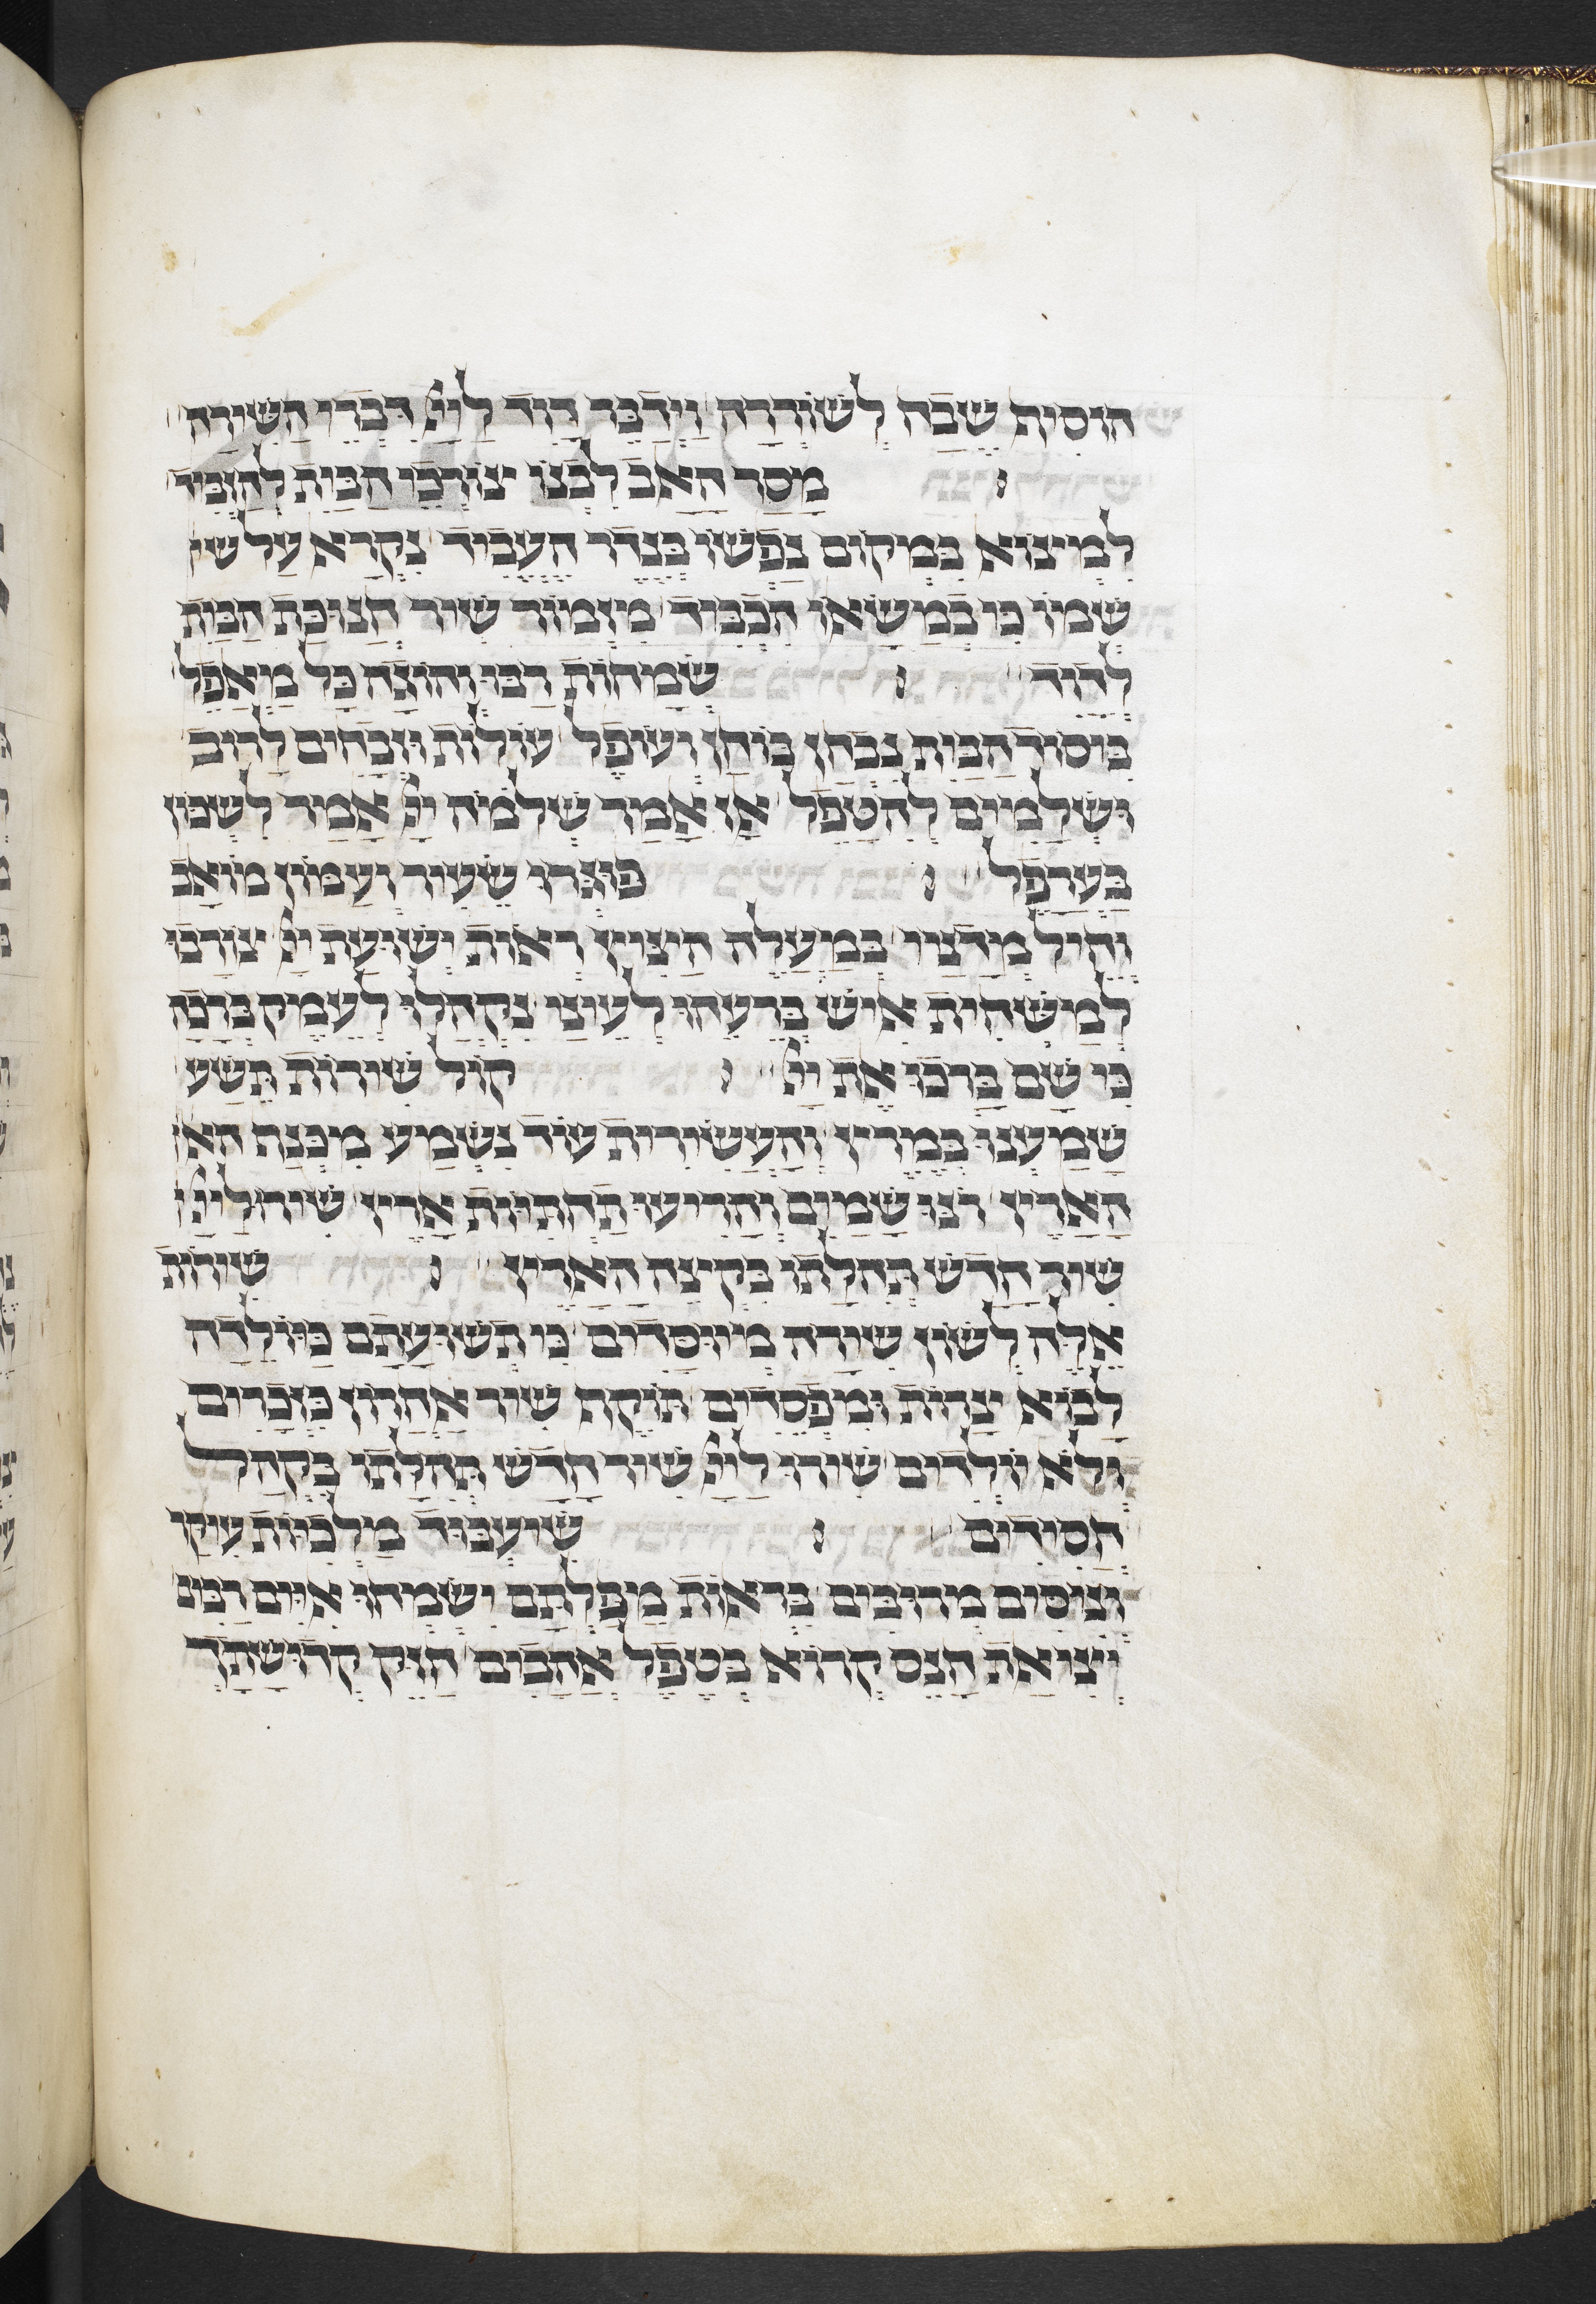 הוסית שבה לשוררה וידבר דוד ליי דברי השירה
מסר האב לבנו צורכי הבית להזביד
למיצוא במקום נפשו כנדר העביד נקרא על שי
שמו כי במשאו הכביד מזמור שיר חנוכת הבית
לדוד שמחות רבו והוצה כל מאפל
ביסוד הבית נבחן בוחן ועופל עולות וזבחים לרוב
ושלמים להטפל אז אמר שלמה יי אמר לשכון
בערפל שעיר ועמון מואב
וחיל במעלה הציץ ראות ישועת יי
למשחית איש ברעהו לעוצו נקהלו לעמק ברכה
כי שם ברכו את יי קול שירות תשע
שמענו במרץ והעשירית עוד נשמע מכנף הא
הארץ רנו שמים והריעו תחתיות ארץ שירו ליי
שיר חדש תהלתו מקצה הארץ שירות
אלה לשון שירה מיוסדים כי תשועתם כיולדה
לבוא צרות ומפסדים תוקף שיר אחרון כזכרים
ולא יולדים שירו ליי שיר חדש תהלתו בקהל
חסידים שיעבוד מלכיות
מדובים בראות מפלתם ישמחו איים רבים
יציאת הנס קרוא בטפל אהבים חזק קדושתך